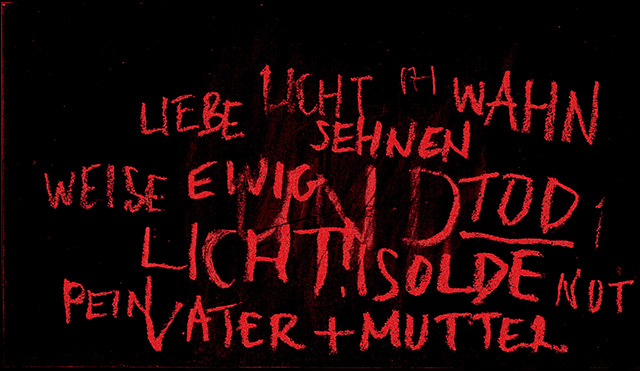 LIEBE LICHT WAHN
SEHNEN
WEISE EWIG TOD
LICHT! ISOLDE NOT
PEIN VATER + MUTTER